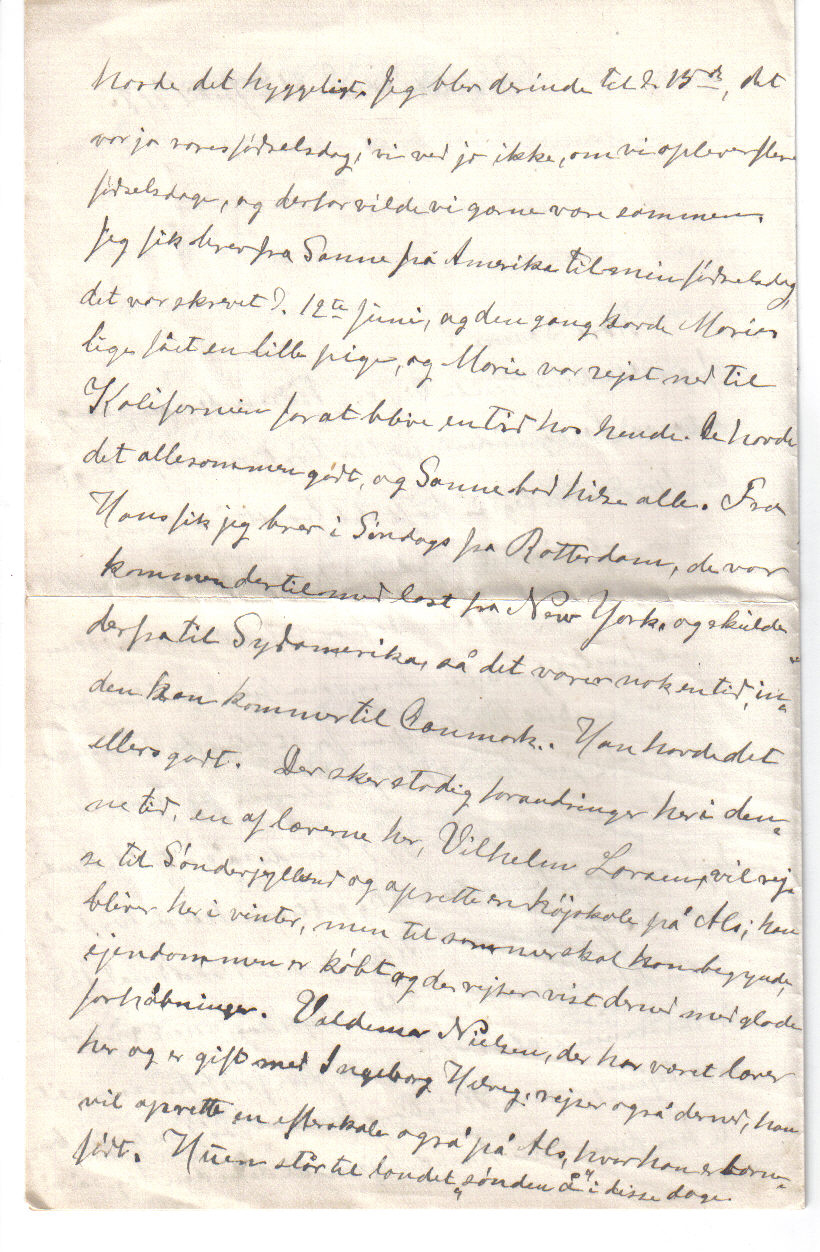 havde det hyggeligt. Jeg blev derinde til d. 15de, det
var jo vores fødselsdag; vi ved jo ikke, om vi oplever flere
fødselsdage, og derfor vilde vi gærne være sammen.
Jeg fik brev fra Sanne fra Amerika til min fødselsdag,
det var skrevet d. 12te juni, og den gang havde Maries
lige fået en lille pige, og Marie var rejst ned til
Kalifornien for at blive en tid hos hende. De havde
det allesammen godt, og Sanne bad hilse alle. Fra
Hans fik jeg brev i Søndags fra Rotterdam, de var
kommen dertil med last fra New York, og skulde
derfra til Sydamerika, så det varer nok en tid, in-
den han kommer til Danmark. Han havde det
ellers godt. Der sker stadig forandringer her i den-
ne tid, en af lærerne her, Vilhelm Larsen, vil rej-
se til Sønderjylland og oprette en højskole på Als; han
bliver her i vinter, men til sommer skal han begynde,
ejendommen er købt og de rejser vist derned med glade
forhåbninger. Valdemar Nielsen, der har været lærer
her og er gift med Ingeborg, rejser også derned, han
vil oprette en efterskole også på Als, hvor han er barne-
født. Huen står til landet "sønden å" i disse dage